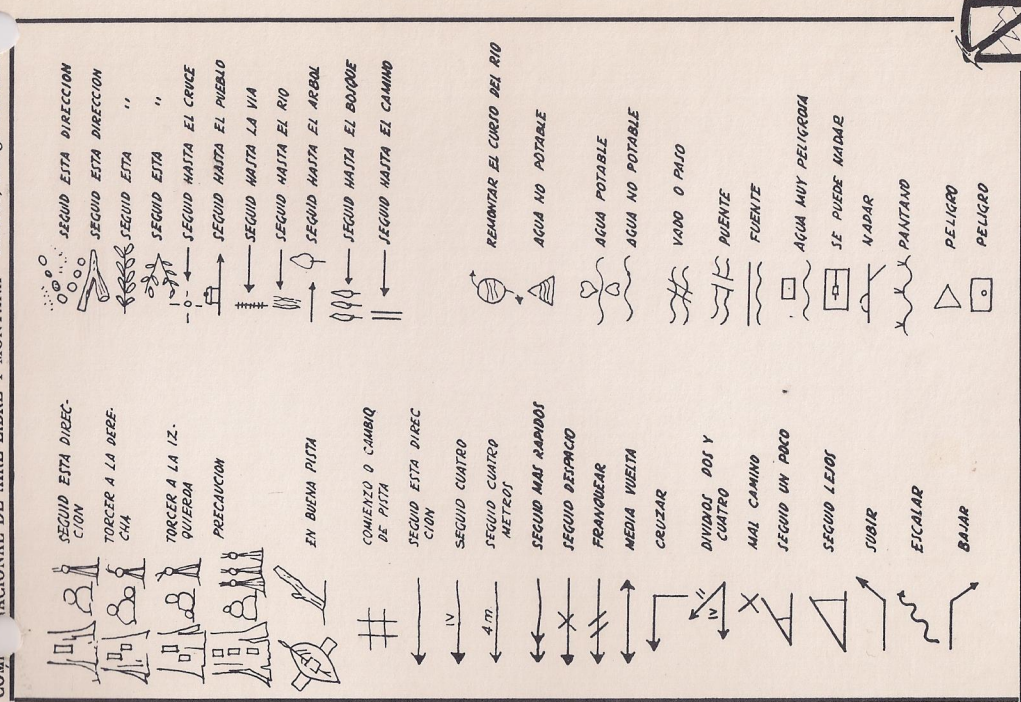 SEGUID ESTA DIREC-
CION
TORCER A LA DERE-
CHA
TORCER A LA IZ-
QUIERDA
PRECAUCION
EN BUENA PISTA
COMIENZO O CAMBIO
DE PISTA
SEGUID ESTA DIREC
CION
IV
SEGUID CUATRO
4 m.
SEGUID CUATRO
METROS
SEGUID MAS RAPIDOS
SEGUID DESPACIO
FRANQUEAR
MEDIA VUELTA
CRUZAR
II
IV
DIVIDIOS DOS Y
CUATRO
MAL CAMINO
SEGUID UN POCO
SEGUID LEJOS
SUBIR
ESCALAR
BAJAR
SEGUID ESTA DIRECCION
SEGUID ESTA DIRECCION
SEGUID ESTA "
SEGUID ESTA "
SEGUID HASTA EL CRUCE
SEGUID HASTA EL PUEBLO
SEGUID HASTA LA VIA
SEGUID HASTA EL RIO
SEGUID HASTA EL ARBOL
SEGUID HASTA EL BOSQUE
SEGUID HASTA EL CAMINO
REMONTAR EL CURSO DEL RIO
AGUA NO POTABLE
AGUA POTABLE
AGUA NO POTABLE
VADO O PASO
PUENTE
FUENTE
AGUA MUY PELIGROSA
SE PUEDE NADAR
NADAR
PANTANO
PELIGRO
PELIGRO